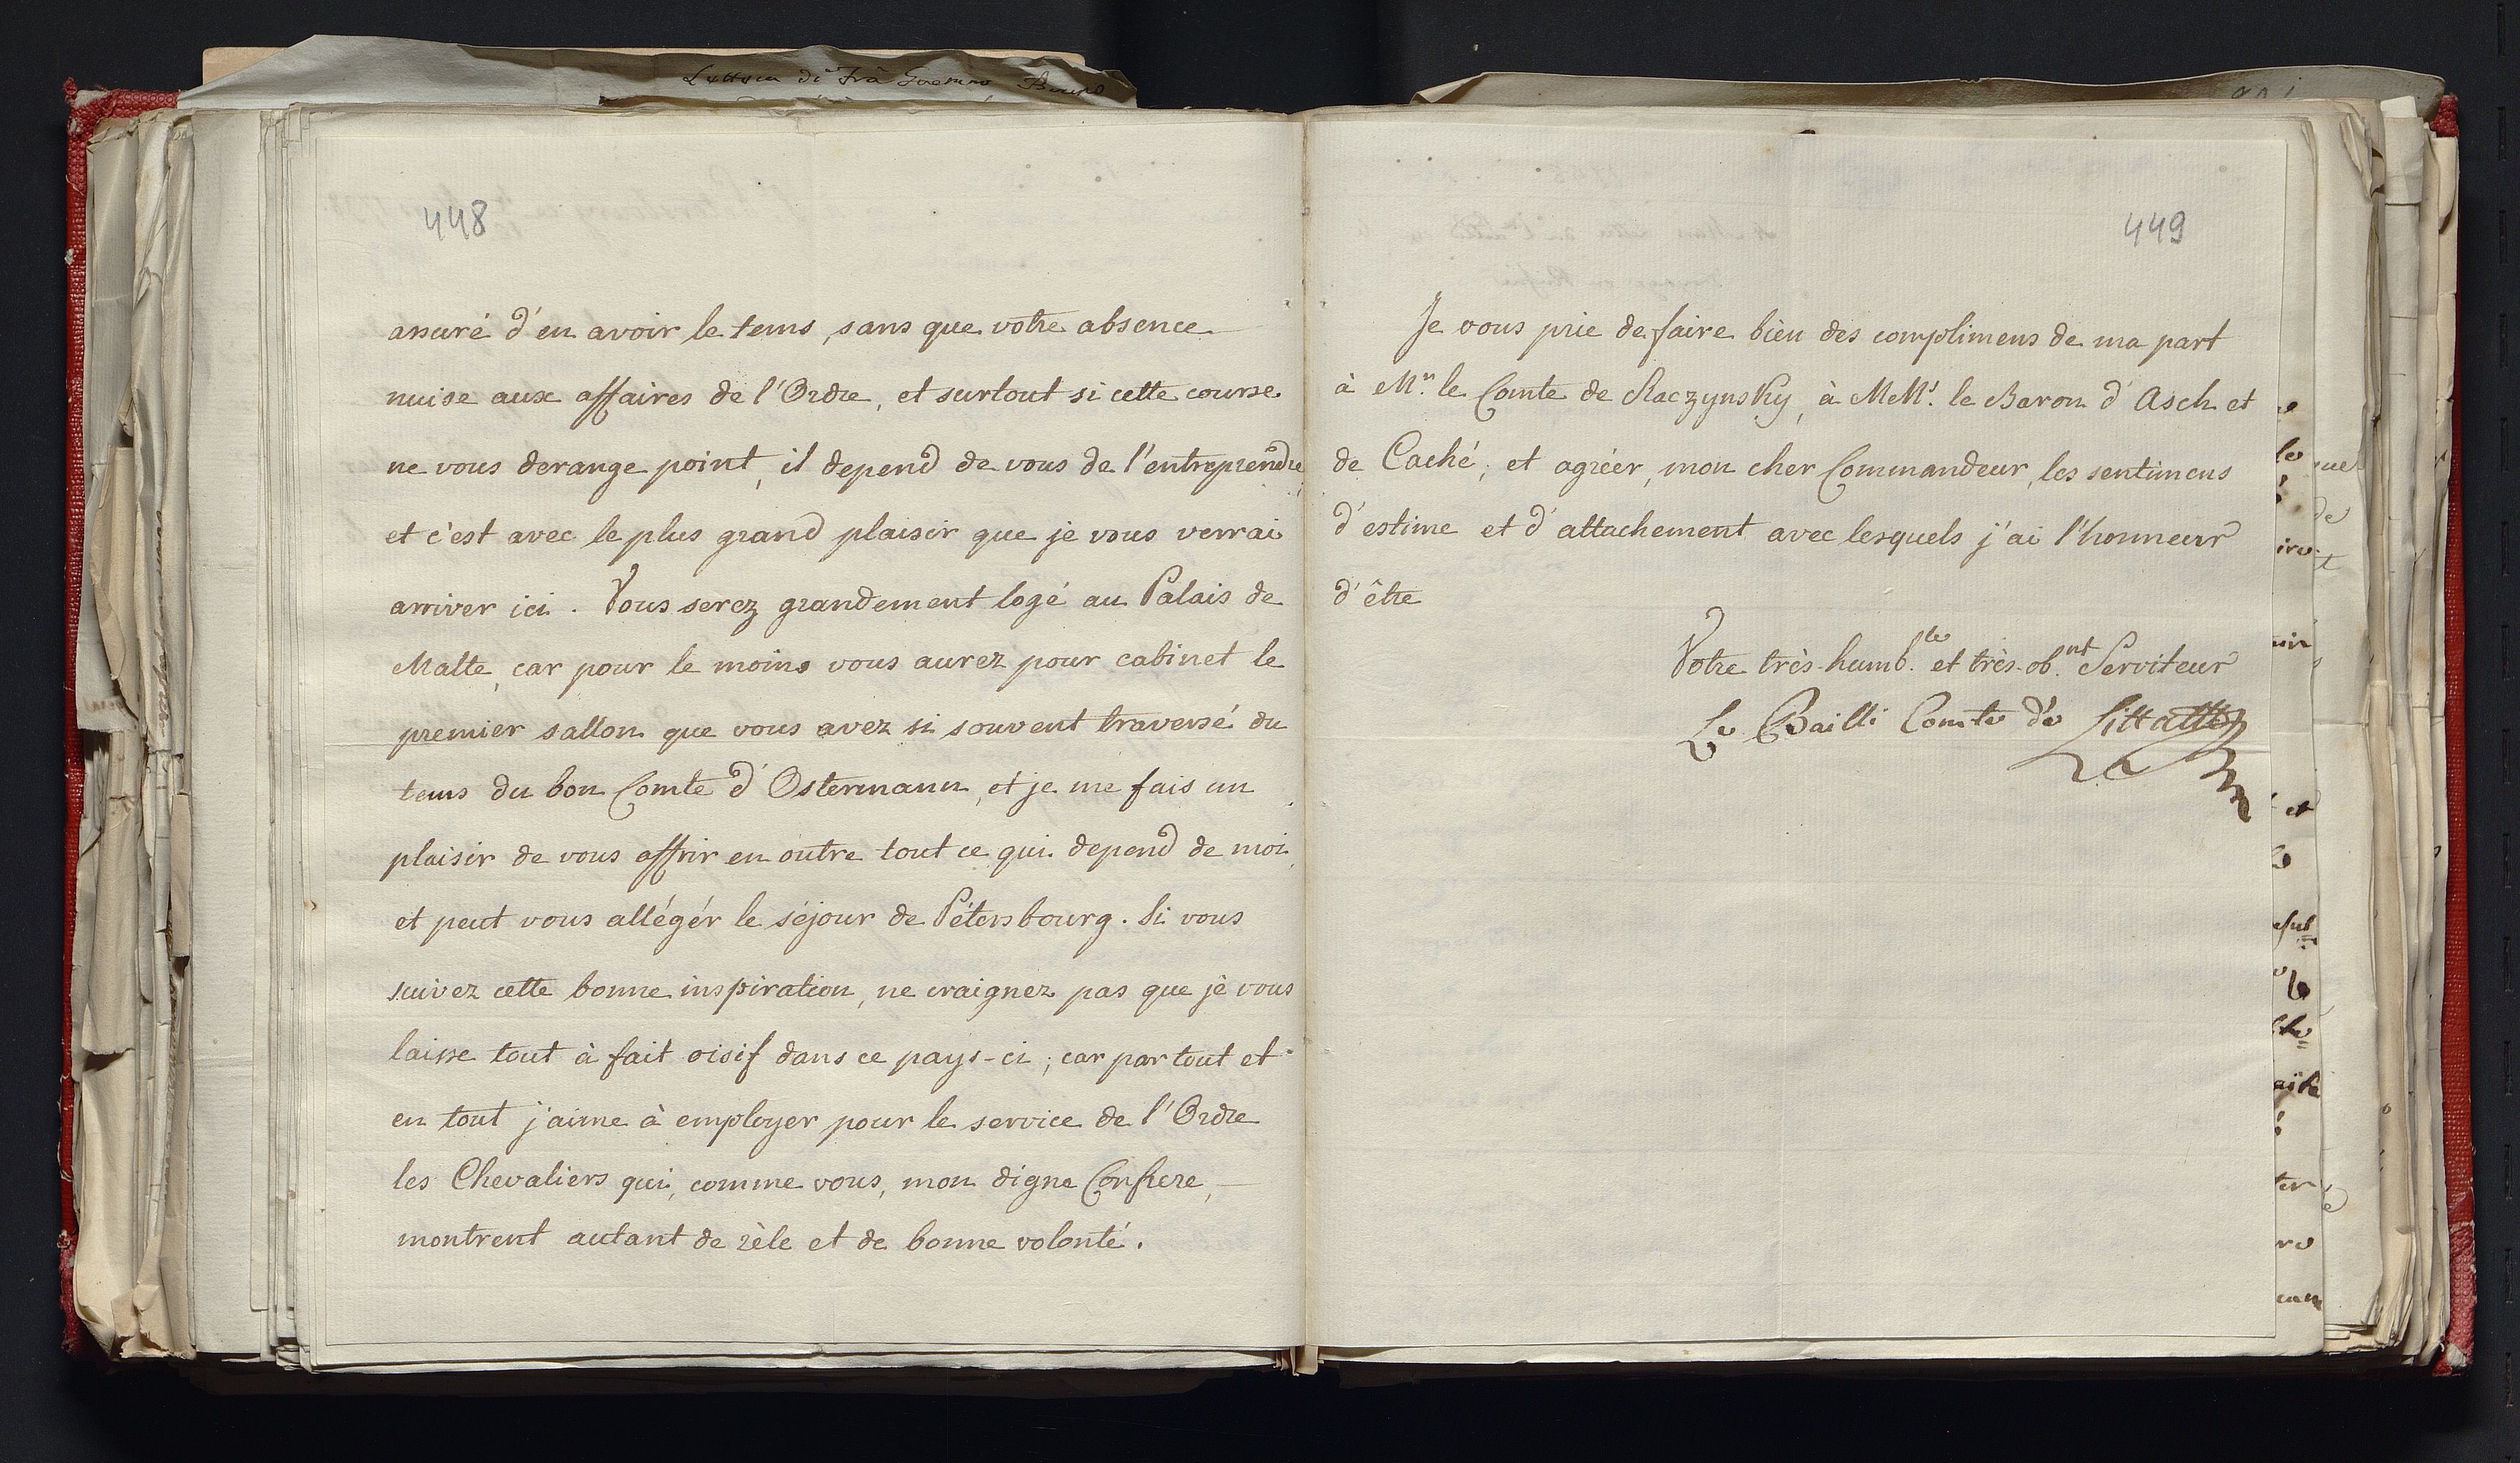 448
assuré d'en avoir le tems, sans que votre absence
nuise aux affaires de l'Ordre, et surtout si cette course
ne vous derange point, il depend de vous de l'entreprendre,
et c'est avec le plus grand plaisir que je vous verrai
arriver ici. Vous serez grandement logé au Palais de
Malte, car pour le moins vous aurez pour cabinet le
premier sallon que vous avez si souvent traversé du
tems du bon Comte d'Ostermann, et je me fais un
plaisir de vous offrir en outre tout ce qui depend de moi,
et peut vous allégér le séjour de Pétersbourg. Si vous
suivez cette bonne inspiration, ne craignez pas que je vous
laisse tout à fait oisif dans ce pays-ci; car par tout et
en tout j'aime à employer pour le service de l'Ordre
les Chevaliers qui, comme vous, mon digne Confrere,
montrent autant de zèle et de bonne volonté.
449
Je vous prie de faire bien des complimens de ma part
à Mr. le Comte de Raczynsky, à MMs. le Baron d'Asch et
de Caché, et agréer, mon cher Commandeur, les sentimens
d'estime et d'attachement avec lesquels j'ai l'honneur
d'être
Votre très-humb.le et très-ob.nt Serviteur
Le Bailli Comte de Litta